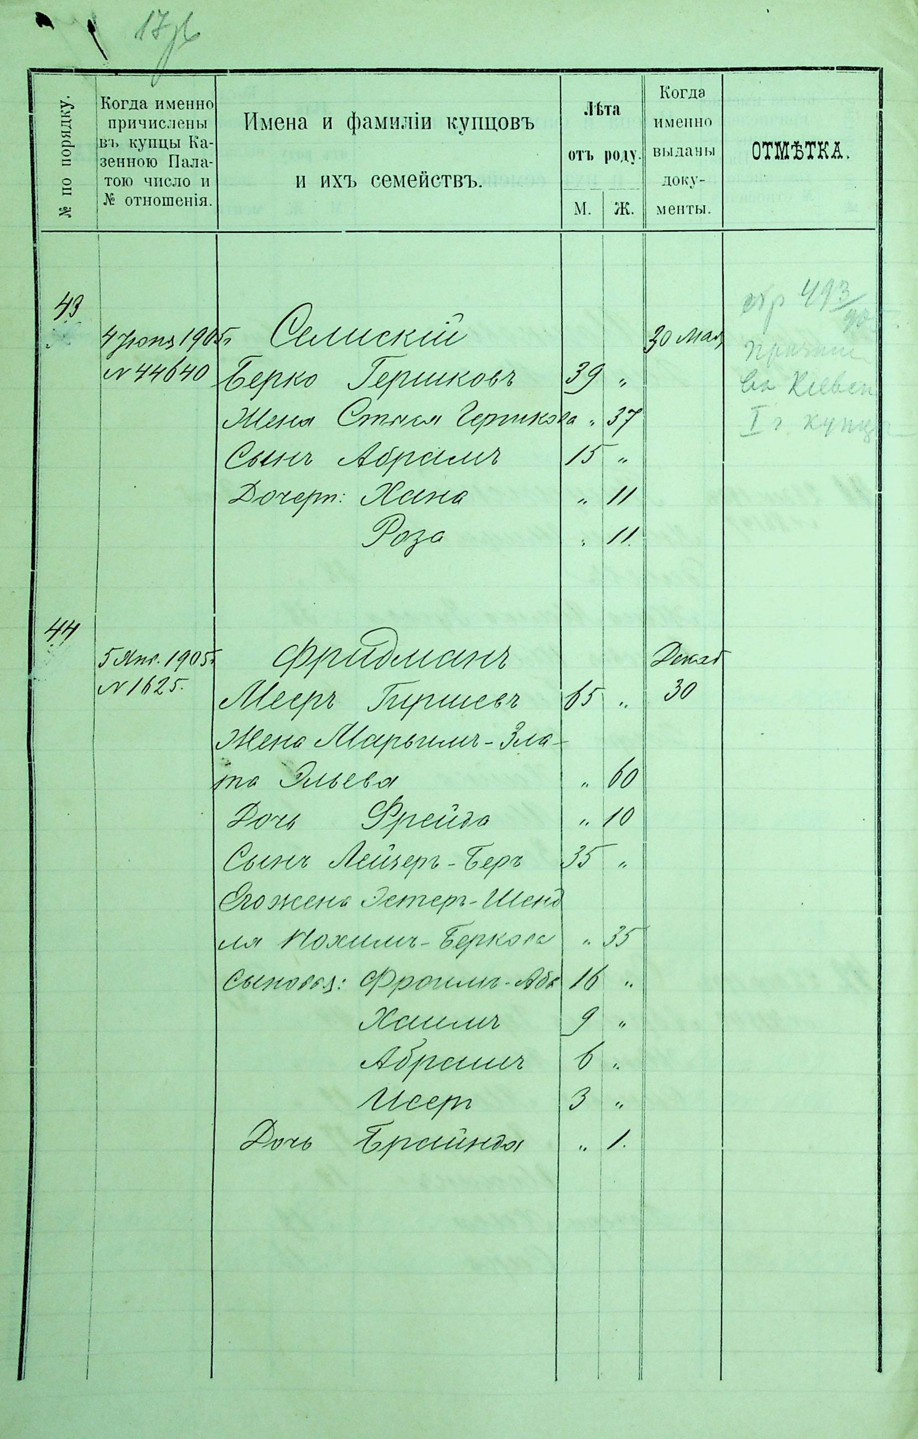 № по порядку.
Когда именно
причислены
въ купцы Ка-
зенною Пала-
тою число и
№ отношенія.
Имена и фамиліи купцовъ
и ихъ семействъ.
Лѣта
отъ роду.
М. Ж.
Когда
именно
выданы
доку-
менты.
ОТМѢТКА.
43
4 Іюня 1905 г. Селискій 30 Мая
N 44640 Берко Гершковъ 39 "
Жена Гершкова " 37
Сынъ Абрамъ 15 "
Дочери: Хана " 11
Роза " 11.
стр 493
I г. купц
44
5 Янв. 1905 г. Фридманъ Декаб
N 1625. Мееръ Гиршевъ 65 " 30
Жена Марьимъ-Зла-
та Эльева " 60
Дочь Фрейда " 10
Сынъ Лейзеръ-Беръ 35 "
Его жена Эстеръ-Шенд
ля Нохимъ-Беркова " 35
Сыновья: Фроимъ-Аба 16 "
Хаимъ 9 "
Абрамъ 6 "
Исеръ 3 "
Дочь Брайнда " 1.